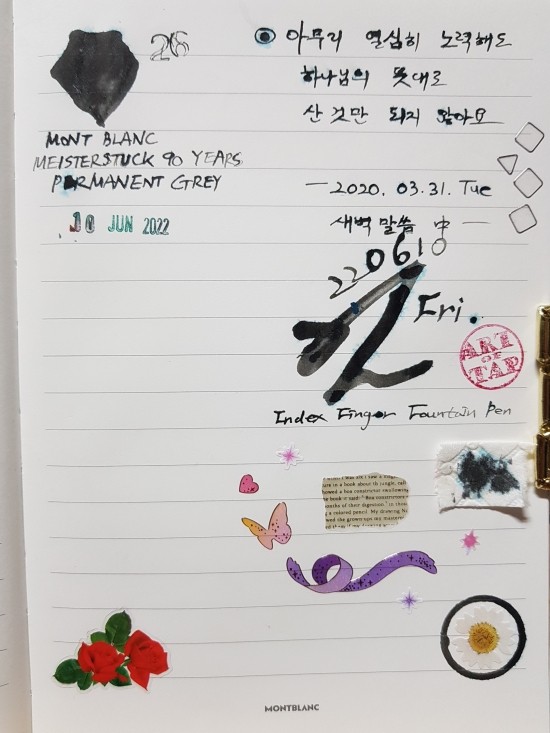 26
아무리 열심히 노력해도
하나님의 뜻대로
산 것만 되지 않아요
MONT BLANC
MEISTERSTUCK 90 YEARS
PERMANENT GREY
— 2020. 03. 31. Tue
새벽 말씀 中 —
10 JUN 2022
220610
Fri.
ART
OF
TAP
Index Finger Fountain Pen
MONTBLANC